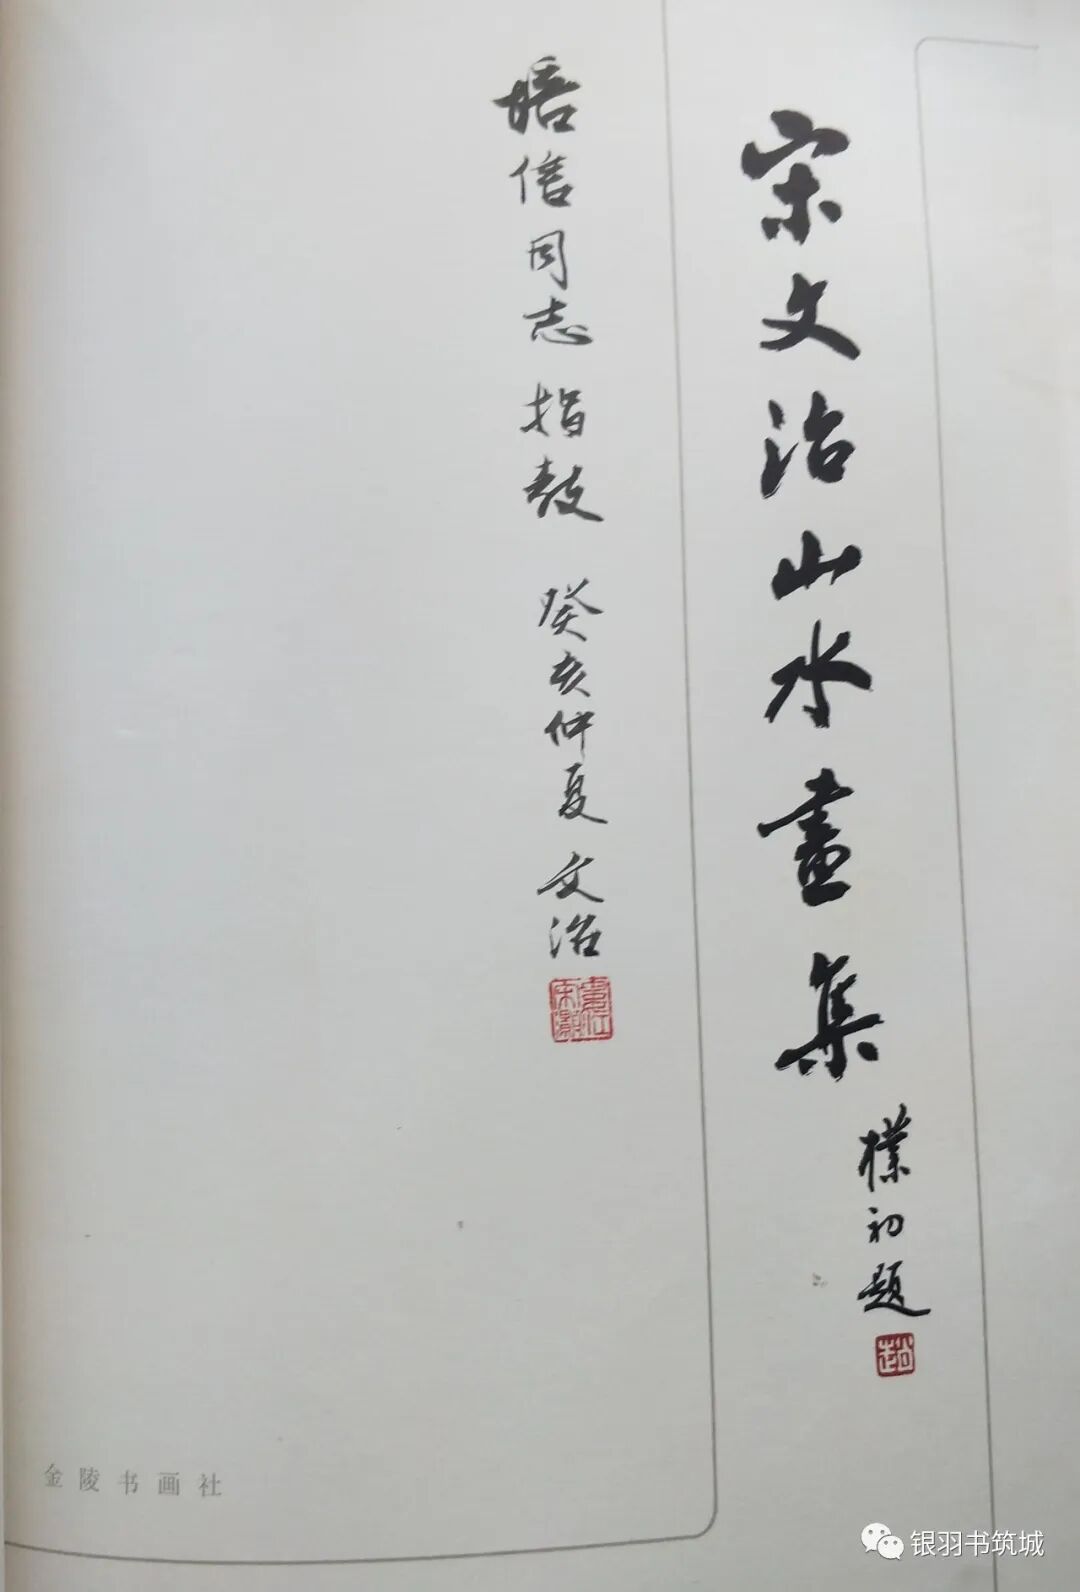 宋文治山水畫集
樸初題
趙
培信同志指教 癸亥仲夏 文治
金陵书画社
银羽书筑城